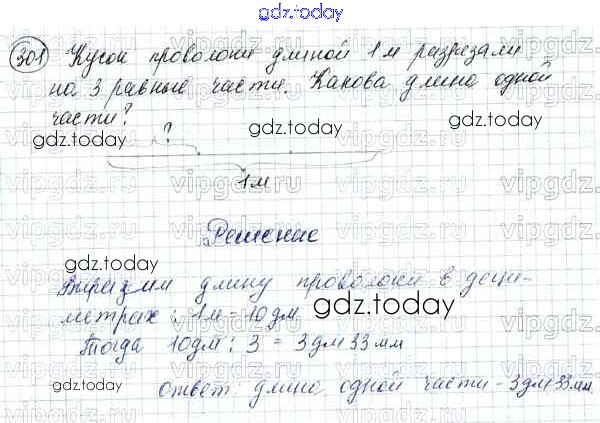 gdz.today
301 Кусок проволоки длиной 1 м разрезали
на 3 равные части. Какова длина одной
части?
gdz.today
gdz.today
gdz.today
?
gdz.today
vipgdz.ru vipgdz.ru vipgdz.ru
1 м
Решение
gdz.today
Выразим длину проволоки в деци-
метрах: 1 м = 10 дм.
gdz.today
Тогда 10 дм : 3 = 3 дм 33 мм
gdz.today
Ответ: длина одной части - 3 дм 33 мм.